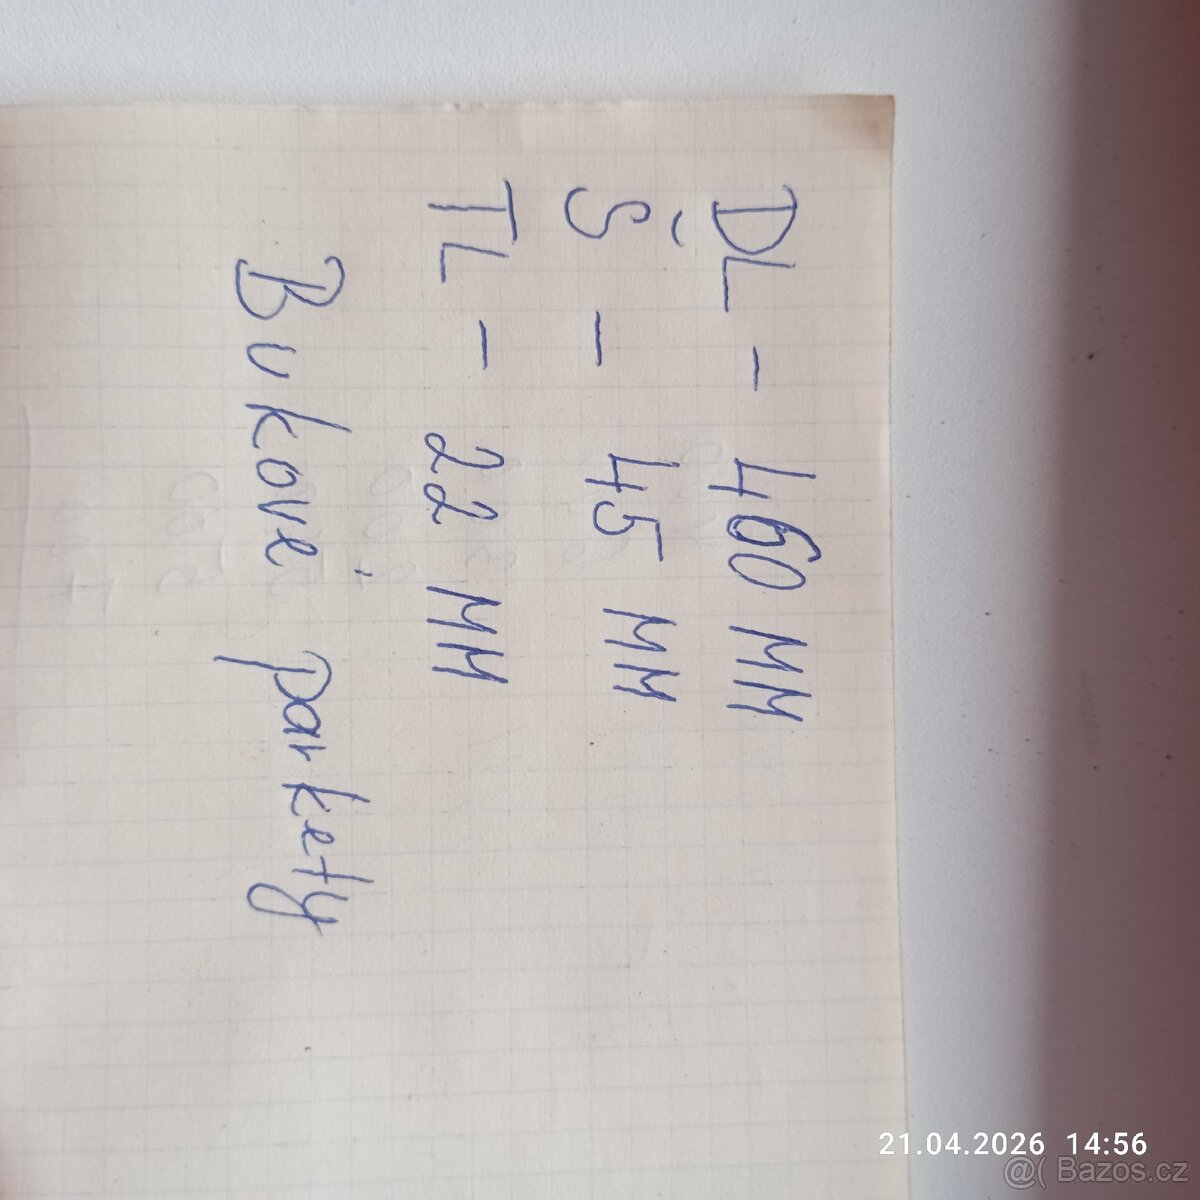 DL - 460 MM
Š - 45 MM
TL - 22 MM
Bukové parkety
21.04.2026 14:56
@( Bazos.cz